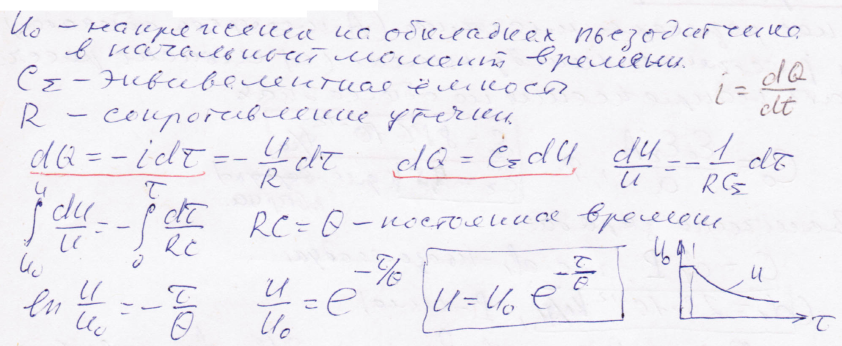 U₀ – напряжение на обкладках пьезодатчика
в начальный момент времени.
C_Σ – эквивалентная ёмкость
i = dQ/dt
R – сопротивление утечки.
dQ = -idτ = -U/R dτ    dQ = C_Σ dU    dU/U = -1/(RC_Σ) dτ
∫_{U₀}^{U} dU/U = -∫_0^τ dτ/(RC)    RC = Θ – постоянная времени
ln U/U₀ = -τ/Θ    U/U₀ = e^{-τ/Θ}    U = U₀ e^{-τ/Θ}
U₀ U τ